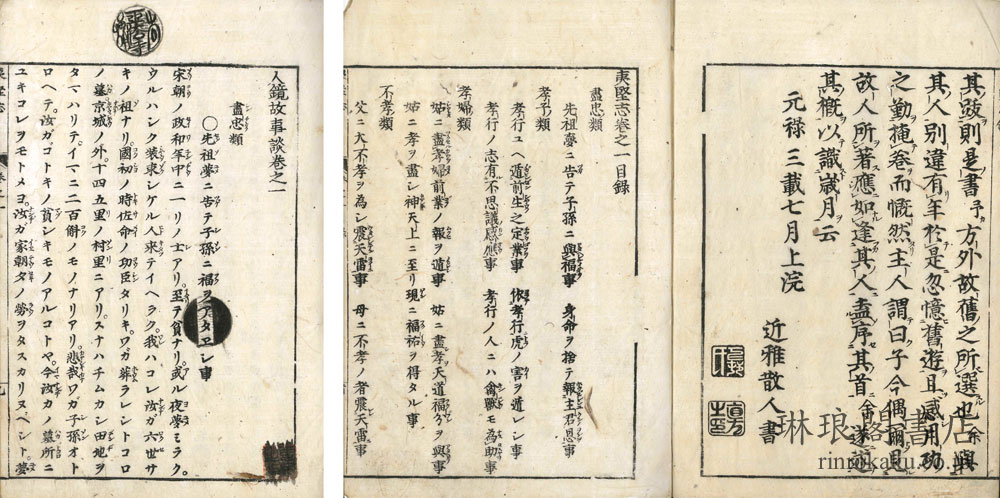 其跋則是書予方外故舊之所選也余與
其人別違有年於是忽憶舊遊且感用功
之勤掩卷而慨然主人謂曰子今偶爾見
故人所著應如逢其人盍序其首余遂述
其概以識歳月云
元禄三載七月上浣
近雅散人書
夷堅志卷之一目録
盡忠類
先祖夢ニ告テ子孫ニ興福事 身命ヲ捨テ報主君恩事
孝子類
孝行ユヘ遁前生之定業事 依孝行虎ノ害ヲ遁レシ事
孝行ノ志有不思議感應事 孝行ノ人ニハ禽獸モ為助事
孝婦類
姑ニ盡孝婦前業ノ報ヲ遁事 姑ニ盡孝天道福分ヲ與事
姑ニ孝ヲ盡シ神天上ニ至リ現ニ福祐ヲ得タル事
不孝類
父ニ大不孝ヲ為シ震天雷事 母ニ不孝ノ者震天雷事
人鏡故事談卷之一
盡忠類
○先祖夢ニ告テ子孫ニ福ヲアタエシ事
宋朝ノ政和年中ニ一リノ士アリ。至テ貧ナリ。或ル夜夢ミラク。
ウルハシク裝束シケル人來テイヘラク。我ハコレ汝カ六世サ
キノ祖ナリ。國初ノ時佐命ノ功臣タリキ。ワガ葬ラレシトコロ
ノ墓京城ノ外。十四五里ノ村里ニアリ。スナハチムカシ田地ヲ
タマハリテ。イマニ二百斛ノモノナリアリ。悲哉ワガ子孫オト
ロヘテ。汝ガコトキノ貧シキモノアルコトヤ。今汝カノ墓所ニ
ユキコレヲモトメヨ。汝ガ家朝夕ノ勞ヲタスカリヌベシト。夢
琳琅閣書店
rinrokaku.co.jp